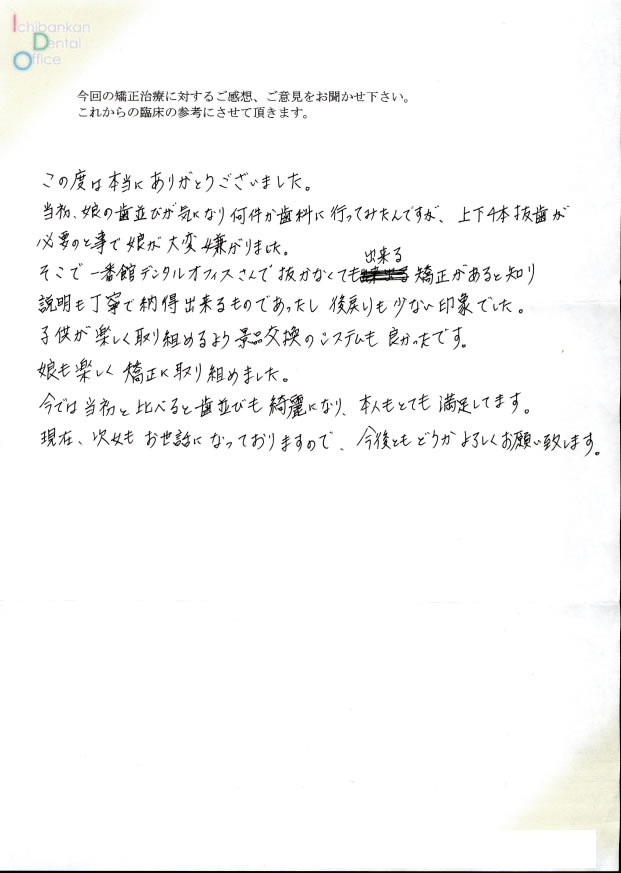 Ichibankan
Dental
Office
今回の矯正治療に対するご感想、ご意見をお聞かせ下さい。
これからの臨床の参考にさせて頂きます。
この度は本当にありがとうございました。
当初、娘の歯並びが気になり何件か歯科に行ってみたんですが、上下4本抜歯が
必要のと事で娘が大変嫌がりました。
そこで一番館デンタルオフィスさんで抜かなくても出来る矯正があると知り
説明も丁寧で納得出来るものであったし後戻りも少ない印象でした。
子供が楽しく取り組めるよう景品交換のシステムも良かったです。
娘も楽しく矯正に取り組めました。
今では当初と比べると歯並びも綺麗になり、本人もとても満足してます。
現在、次女もお世話になっておりますので、今後ともどうかよろしくお願い致します。